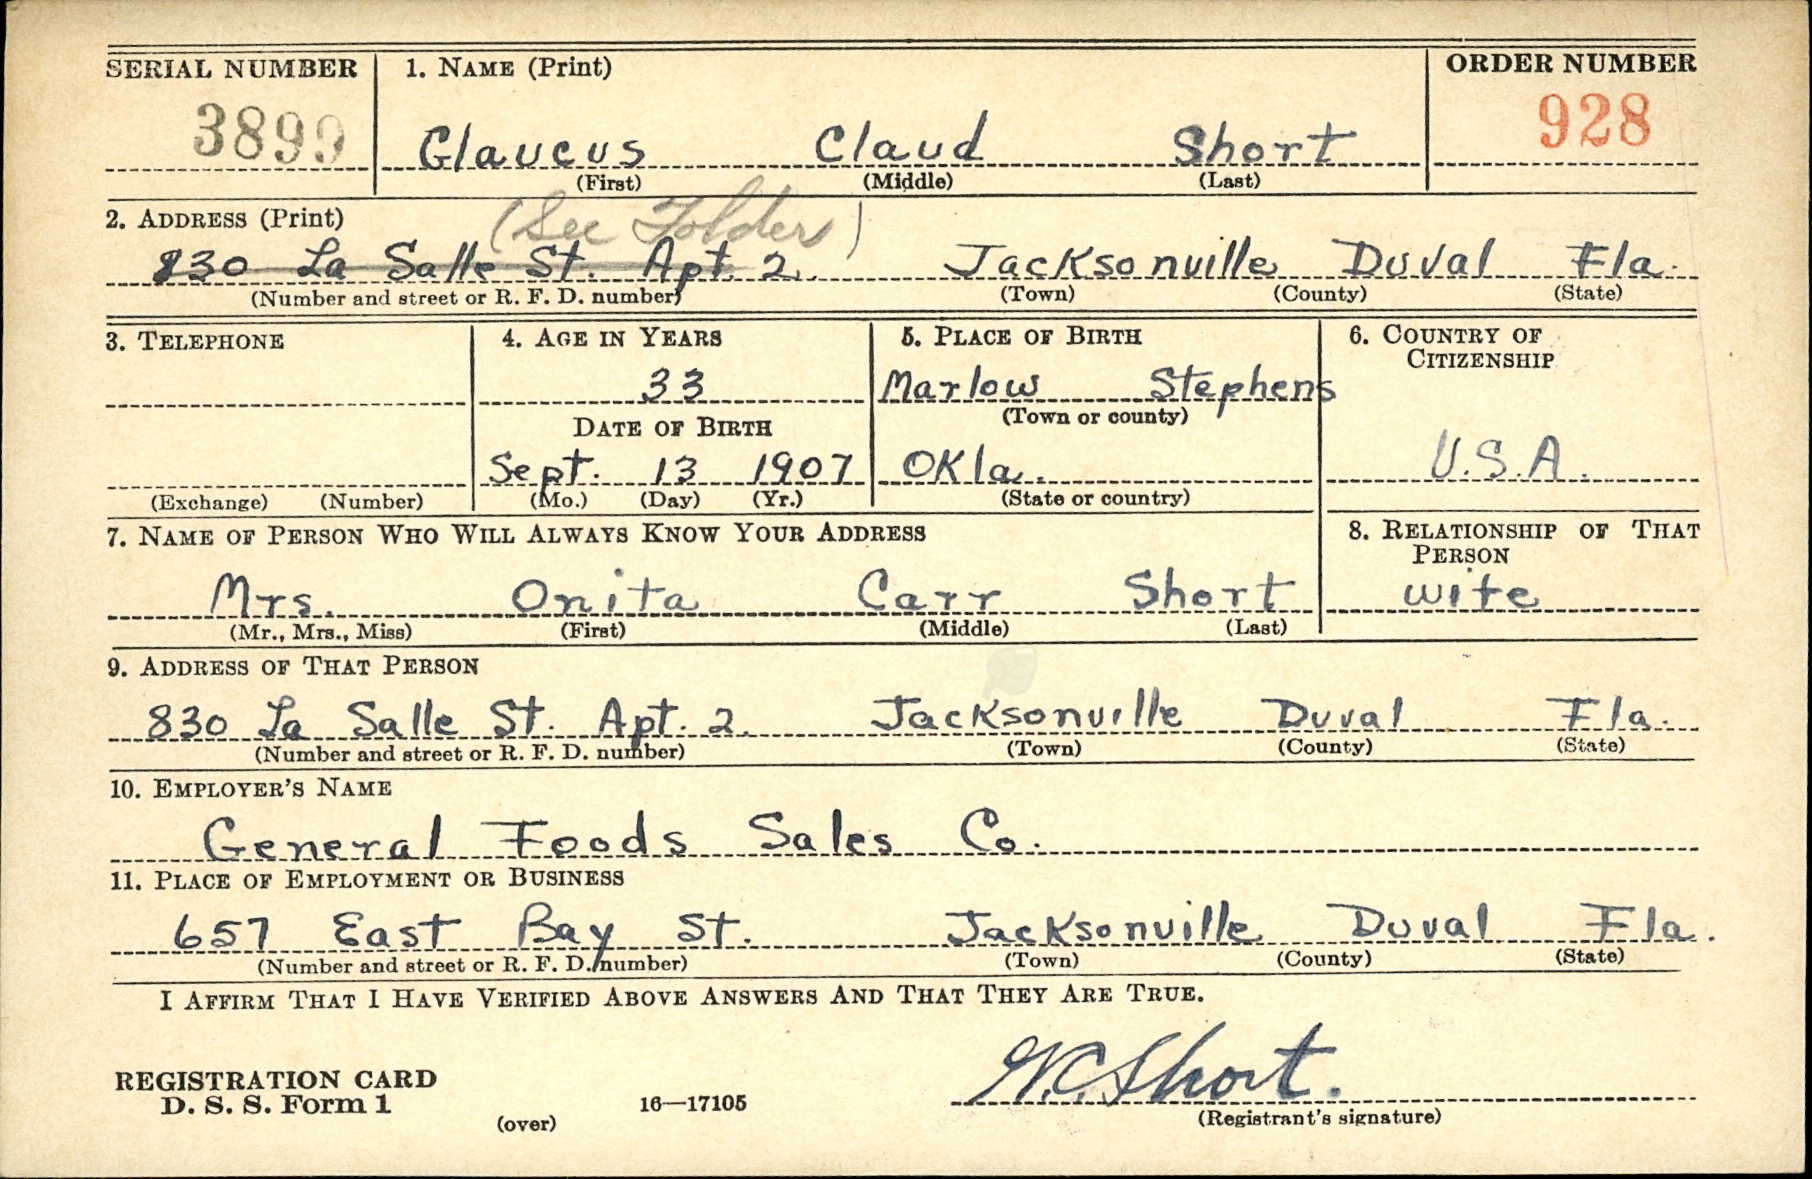 SERIAL NUMBER 1. NAME (Print) ORDER NUMBER
3899 Glaucus Claud Short 928
(First) (Middle) (Last)
2. ADDRESS (Print) (See Folder)
830 La Salle St. Apt. 2. Jacksonville Duval Fla.
(Number and street or R. F. D. number) (Town) (County) (State)
3. TELEPHONE 4. AGE IN YEARS 5. PLACE OF BIRTH 6. COUNTRY OF
CITIZENSHIP
33 Marlow Stephens
(Town or county)
DATE OF BIRTH
Sept. 13 1907 Okla. U.S.A.
(Exchange) (Number) (Mo.) (Day) (Yr.) (State or country)
7. NAME OF PERSON WHO WILL ALWAYS KNOW YOUR ADDRESS 8. RELATIONSHIP OF THAT
PERSON
Mrs. Onita Carr Short wife
(Mr., Mrs., Miss) (First) (Middle) (Last)
9. ADDRESS OF THAT PERSON
830 La Salle St. Apt. 2. Jacksonville Duval Fla.
(Number and street or R. F. D. number) (Town) (County) (State)
10. EMPLOYER'S NAME
General Foods Sales Co.
11. PLACE OF EMPLOYMENT OR BUSINESS
657 East Bay St. Jacksonville Duval Fla.
(Number and street or R. F. D. number) (Town) (County) (State)
I AFFIRM THAT I HAVE VERIFIED ABOVE ANSWERS AND THAT THEY ARE TRUE.
REGISTRATION CARD
D. S. S. Form 1 16—17105 Short.
(over) (Registrant's signature)